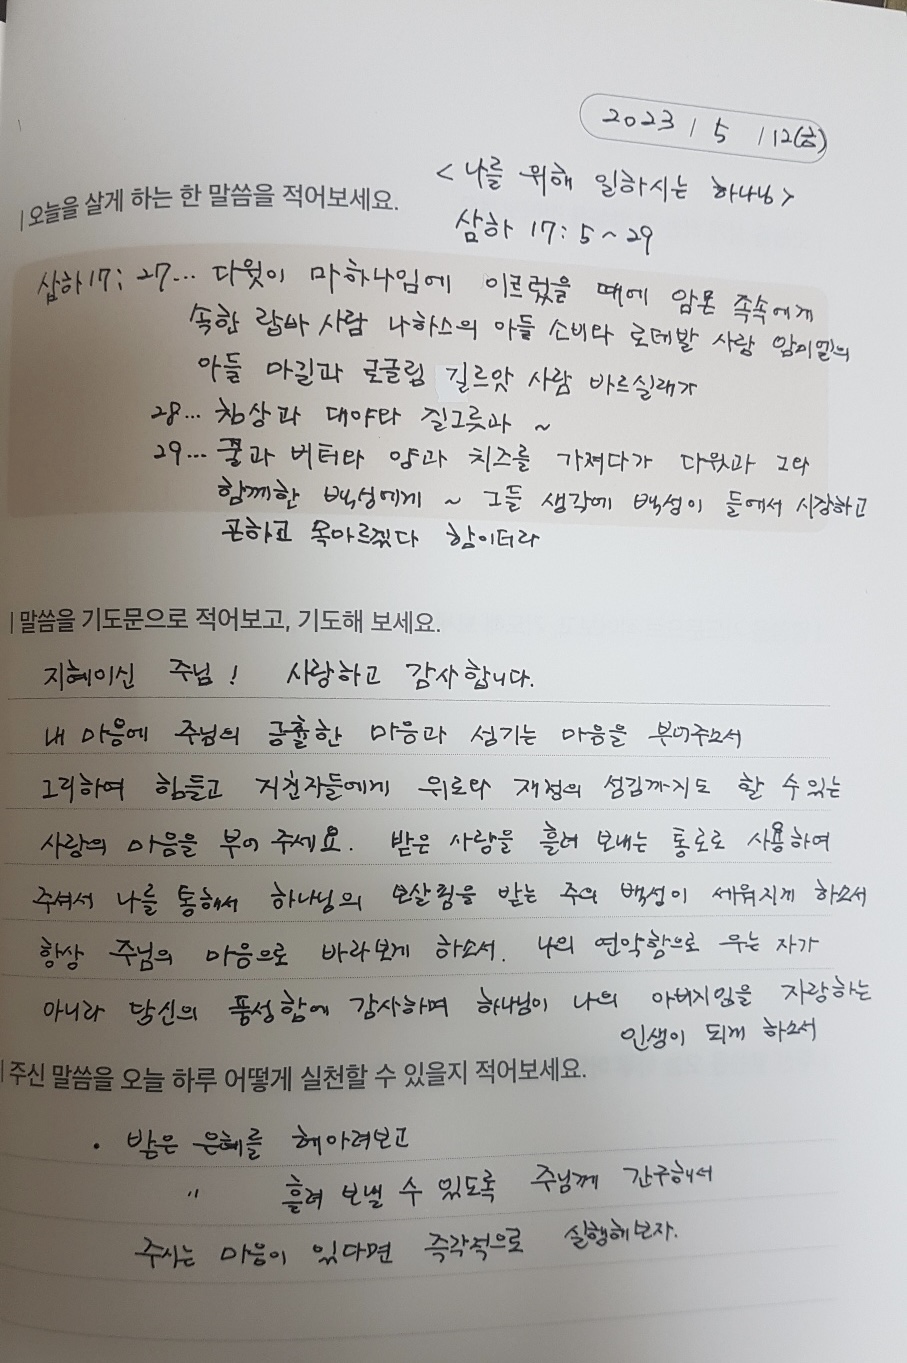 2023 / 5 / 12(금)
<나를 위해 일하시는 하나님>
| 오늘을 살게 하는 한 말씀을 적어보세요.
삼하 17 : 5 ~ 29
삼하17 : 27... 다윗이 마하나임에 이르렀을 때에 암몬 족속에게
속한 랍바 사람 나하스의 아들 소비와 로데발 사람 암미엘의
아들 마길과 로글림 길르앗 사람 바르실래가
28... 침상과 대야와 질그릇과 ~
29... 꿀과 버터와 양과 치즈를 가져다가 다윗과 그와
함께한 백성에게 ~ 그들 생각에 백성이 들에서 시장하고
곤하고 목마르겠다 함이더라
| 말씀을 기도문으로 적어보고, 기도해 보세요.
지혜이신 주님! 사랑하고 감사합니다.
내 마음에 주님의 긍휼한 마음과 섬기는 마음을 부어주소서
그리하여 힘들고 지친자들에게 위로와 재정의 섬김까지도 할 수 있는
사랑의 마음을 부어 주세요. 받은 사랑을 흘려 보내는 통로로 사용하여
주셔서 나를 통해서 하나님의 보살핌을 받는 주의 백성이 세워지게 하소서
항상 주님의 마음으로 바라보게 하소서. 나의 연약함으로 우는 자가
아니라 당신의 풍성함에 감사하며 하나님이 나의 아버지임을 자랑하는
인생이 되게 하소서
| 주신 말씀을 오늘 하루 어떻게 실천할 수 있을지 적어보세요.
• 받은 은혜를 헤아려보고
〃 흘려 보낼 수 있도록 주님께 간구해서
주시는 마음이 있다면 즉각적으로 실행해보자.